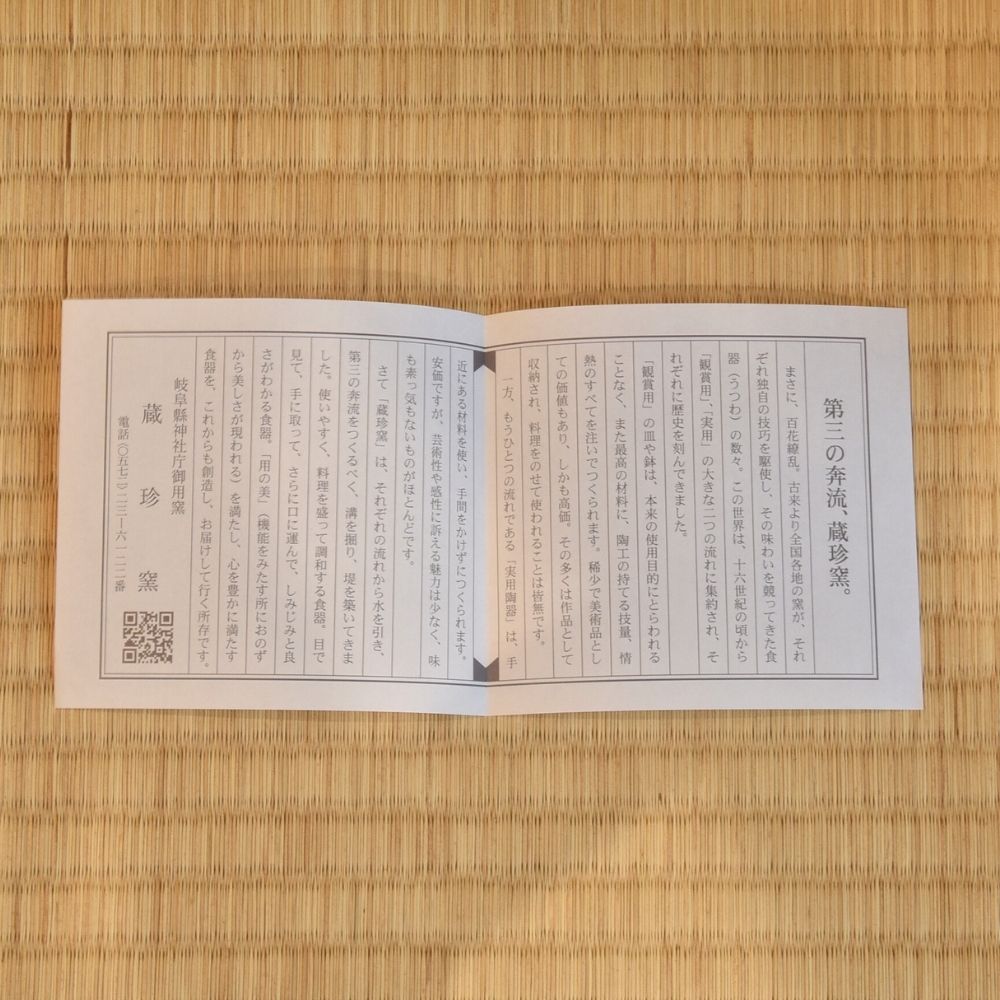 第三の奔流、蔵珍窯。
まさに、百花繚乱。古来より全国各地の窯が、それ
ぞれ独自の技巧を駆使し、その味わいを競ってきた食
器（うつわ）の数々。この世界は、十六世紀の頃から
「観賞用」、「実用」の大きな二つの流れに集約され、そ
れぞれに歴史を刻んできました。
「観賞用」の皿や鉢は、本来の使用目的にとらわれる
ことなく、また最高の材料に、陶工の持てる技量、情
熱のすべてを注いでつくられます。稀少で美術品とし
ての価値もあり、しかも高価。その多くは作品として
収納され、料理をのせて使われることは皆無です。
一方、もうひとつの流れである「実用陶器」は、手
近にある材料を使い、手間をかけずにつくられます。
安価ですが、芸術性や感性に訴える魅力は少なく、味
も素っ気もないものがほとんどです。
さて「蔵珍窯」は、それぞれの流れから水を引き、
第三の奔流をつくるべく、溝を掘り、堤を築いてきま
した。使いやすく、料理を盛って調和する食器。目で
見て、手に取って、さらに口に運んで、しみじみと良
さがわかる食器。「用の美」（機能をみたす所におのず
から美しさが現われる）を満たし、心を豊かに満たす
食器を、これからも創造し、お届けして行く所存です。
岐阜縣神社庁御用窯
蔵珍窯
電話（〇五七二）二三ー六一二二番